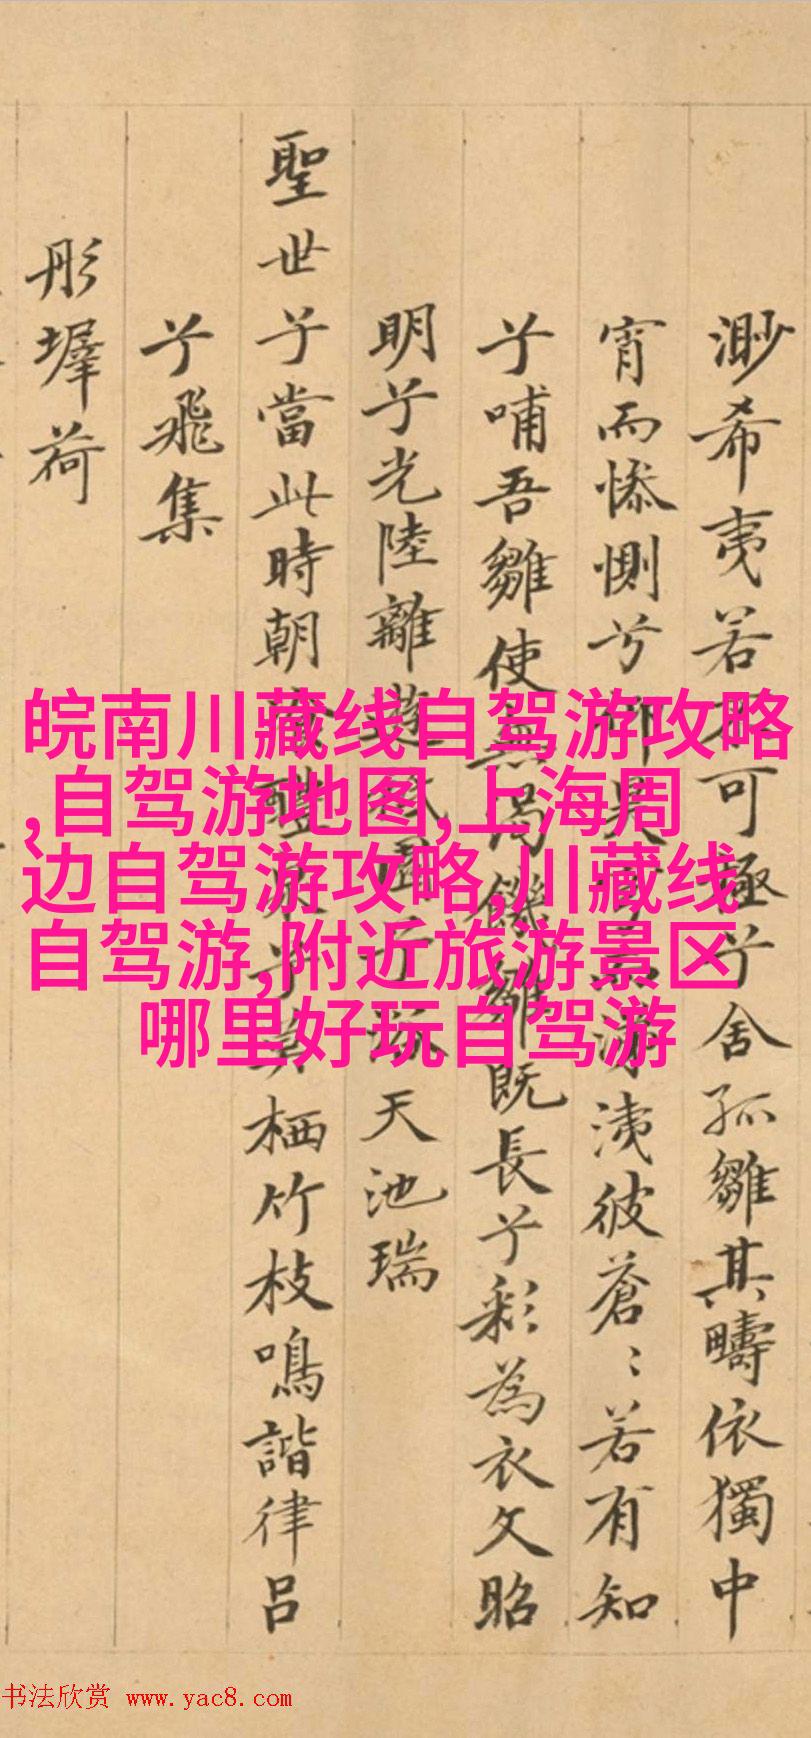 渺希夷若不可極兮舍孤雛其疇依獨中
宵而惨惻兮仰昊穹以涕洟彼蒼〻若有知
兮哺吾雛使無渴飢雛既長兮彩為衣文昭
明兮光陸離蓬兮天池瑞
聖世兮當此時朝兮莫栖竹枝鳴諧律呂
兮飛集
彤墀荷
皖南川藏线自驾游攻略
,自驾游地图,上海周
边自驾游攻略,川藏线
自驾游,附近旅游景区
哪里好玩自驾游
书法欣赏 www.yac8.com